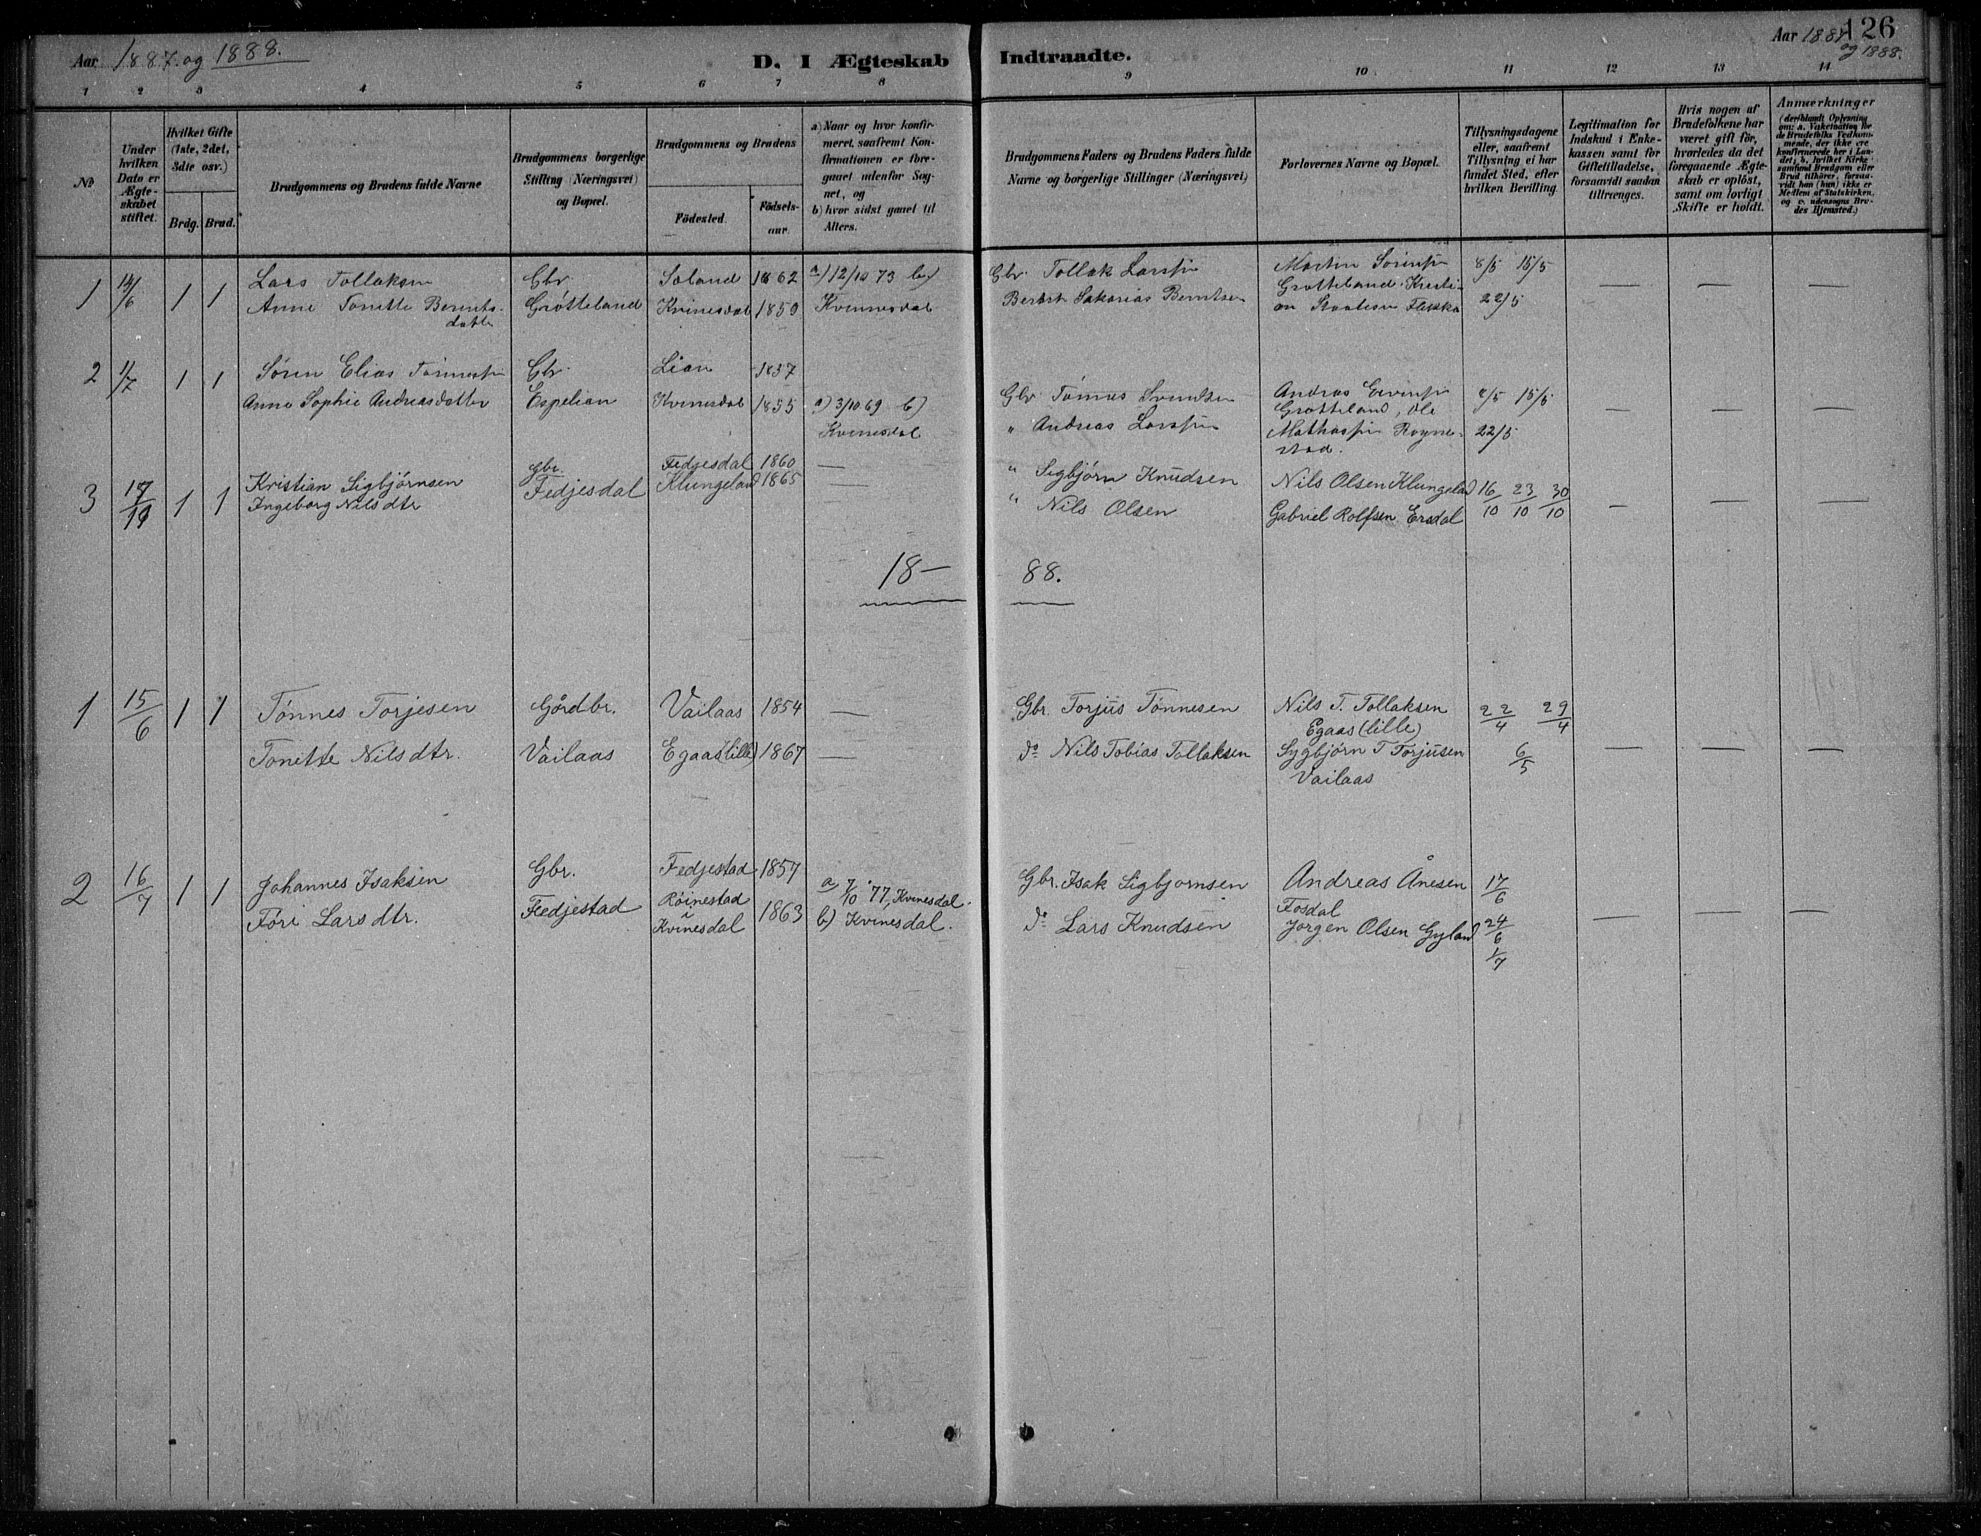 Aar 1887. og 1888.
D. I Ægteskab Indtraadte.
Aar 1887 og 1888.
126
1 2 3 4 5 6 7 8 9 10 11 12 13 14
No
Under hvilken Dato er Ægteskabet stiftet.
Hvilket Gifte (1ste, 2det, 3die osv.)
Brdg. Brud.
Brudgommens og Brudens fulde Navne
Brudgommens borgerlige Stilling (Næringsvei) og Bopæl.
Brudgommens og Brudens
Födested. Födselsaar.
a) Naar og hvor konfirmeret, saafremt Konfirmationen er foregaaet udenfor Sognet, og
b) hvor sidst gaaet til Alters.
Brudgommens Faders og Brudens Faders fulde Navne og borgerlige Stillinger (Næringsvei)
Forlovernes Navne og Bopæl.
Tillysningsdagene eller, saafremt Tillysning ei har fundet Sted, efter hvilken Bevilling.
Legitimation for Indskud i Enkekassen samt for Giftetilladelse, forsaavidt saadan tiltrænges.
Hvis nogen af Brudefolkene har været gift för, hvorledes da det foregaaende Ægteskab er oplöst, samt om lovligt Skifte er holdt.
Anmærkninger (deriblandt Oplysning om: a. Vakcination for de Brudefolks Vedkommende, der ikke ere konfirmerede her i Landet; b. hvilket Kirkesamfund Brudgom eller Brud tilhörer, forsaavidt han (hun) ikke er Medlem af Statskirken, og c. udensogns Brudes Hjemsted.)
1 14/6 1 1 Lars Tollaksen Gbr Soland 1862 a) 12/10 73 b) Gbr. Tollak Larssen Martin Sörensen 8/5 15/5 — — —
Anne Tonette Berntsdatter Grotteland Kvinesdal 1850 Kvinnesdal Sakarias Berntsen Grotteland Kristian Flikka 22/5
2 1/7 1 1 Søren Elias Tønnessen Gbr. Lian 1837 Gbr Tønnes Svendsen Andreas 8/5 15/5 — — —
Anne Sophie Andreasdatter Espelian Kvinesdal 1855 a) 3/10 69 b) Kvinesdal " Andreas Larssen Grotteland, Ole 22/5
3 17/10 1 1 Kristian Sigbjørnsen Gbr. Fedjesdal 1860 — " Sigbjørn Knudsen Nils Olsen Klungeland 16/10 23/10 30/10 — — —
Ingeborg Nilsdtr Fedjesdal Klungeland 1865 — " Nils Olsen Gabriel Rolfsen Ersdal
18— 88.
1 15/6 1 1 Tønnes Torjesen Gårdbr. Vailaas 1854 — Gbr. Torjus Tønnesen Nils T. Tollaksen Egaas (lille) 22/4 29/4
Tonette Nilsdtr. Vailaas Egaas (lille) 1867 — do Nils Tobias Tollaksen Sygbjørn T Torjusen Vailaas 6/5 — — —
2 16/7 1 1 Johannes Isaksen Gbr. Fedjestad 1857 a, 7/10 '77, Kvinesdal. Gbr. Isak Sigbjornsen Andreas Ånesen Fosdal 17/6
Føri Larsdtr. Fedjestad Röinestad i Kvinesdal 1863 b) Kvinesdal. do Lars Knudsen Jørgen Olsen Gyland 24/6 1/7 — — —